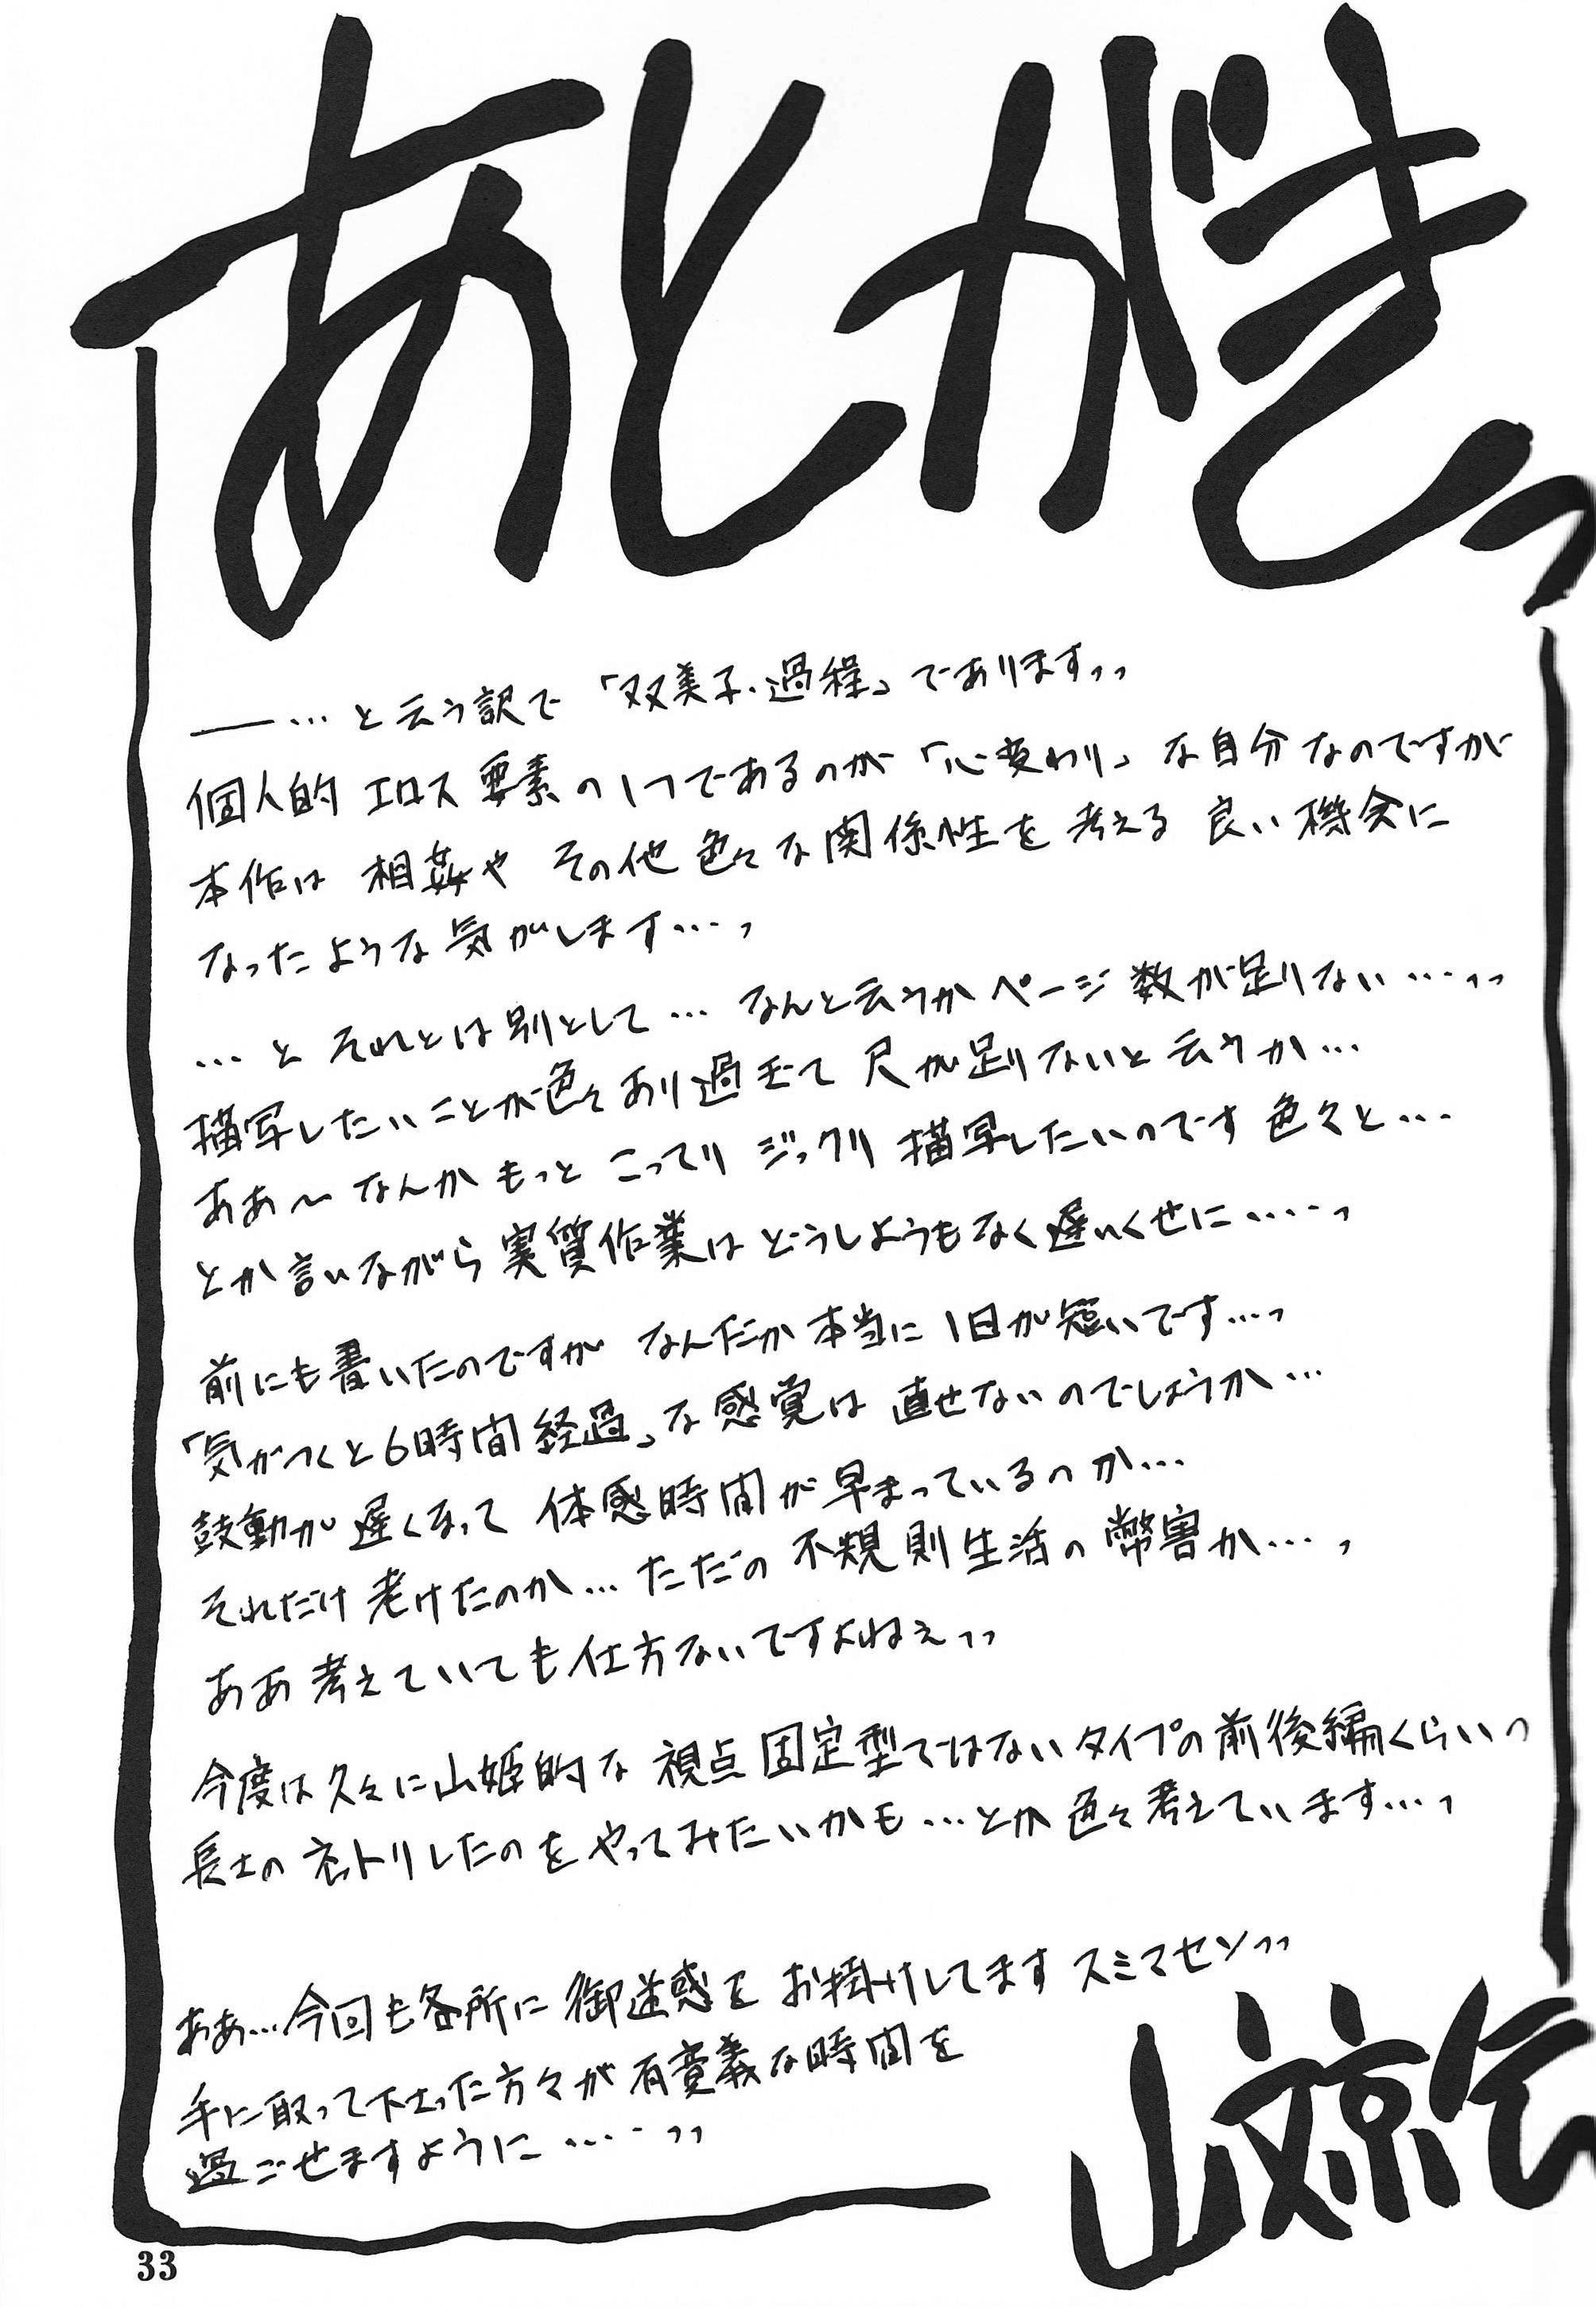 あとがきっ
――…と云う訳で「双美子・過程」であります、、
個人的エロス要素の1つであるのが「心変わり」な自分なのですが
本作は 相姦や その他色々な関係性を 考える 良い機会に
なったような気がします…、
…と それとは別として… なんと云うかページ数が足りない…、、
描写したいことが色々あり過ぎて 尺が足りないと云うか…
ああ～なんか もっと こってり ジックリ 描写したいのです 色々と…
とか言いながら実質作業は どうしようもなく遅いくせに……、
前にも書いたのですが なんだか本当に1日が短いです…、
「気がつくと6時間経過」な感覚は 直せないのでしょうか…
鼓動が遅くなって 体感時間が早まっているのか…
それだけ老けたのか… ただの不規則生活の弊害か…、
ああ考えていても仕方ないですよねぇ、、
今度は久々に山姫的な 視点固定型ではないタイプの前後編くらいっ
長士の ネトリしたのを やってみたいかも…とか 色々考えています…、
ああ…今回も各所に 御迷惑を お掛けしてます スミマセン、、
手に取って下さった方々が有意義な時間を
過ごせますように……、、
山文京伝
33